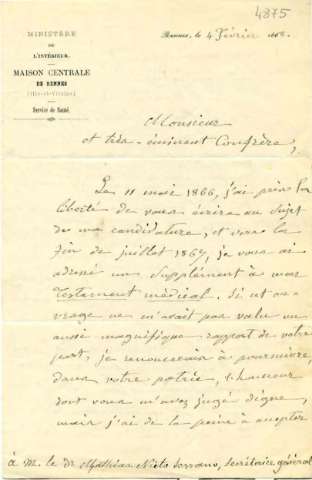 4875
MINISTÈRE
DE
L'INTÉRIEUR.
MAISON CENTRALE
DE RENNES
(Ille-et-Vilaine)
Service de Santé.
Rennes, le 4 Février 186
Monsieur
et très-éminent Confrère,
Le 11 mai 1866, j'ai pris la
liberté de vous écrire au sujet
de ma candidature, et vers la
fin de juillet 1867, je vous ai
adressé un supplément à mon
Testament médical. Si cet ou-
vrage ne m'avait pas valu un
aussi magnifique rapport de votre
part, je renoncerais à poursuivre,
dans votre patrie, l'honneur
dont vous m'avez jugé digne,
mais j'ai de la peine à accepter
à M. le dr Mathias Nieto Serrano, secrétaire général